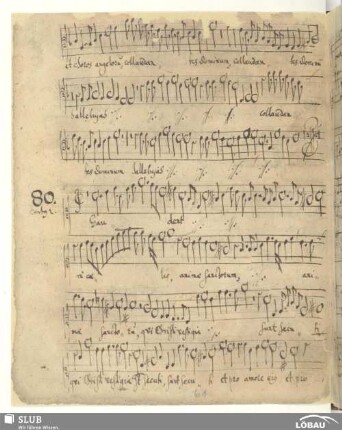 et choros angelorū collaudan tes Dominum, collaudan tes Dominū
halleluja collaudan
tes Dominum halleluja
80.
Gau dent
in cæ lis, animæ sanctorum, ani
mæ sancto rū, qui Christi vestigia sunt secu
qui Christi vestigia st secuti, sunt secu ti et pro amore eius et pro
SLUB
Wir führen Wissen.
LÖBAU